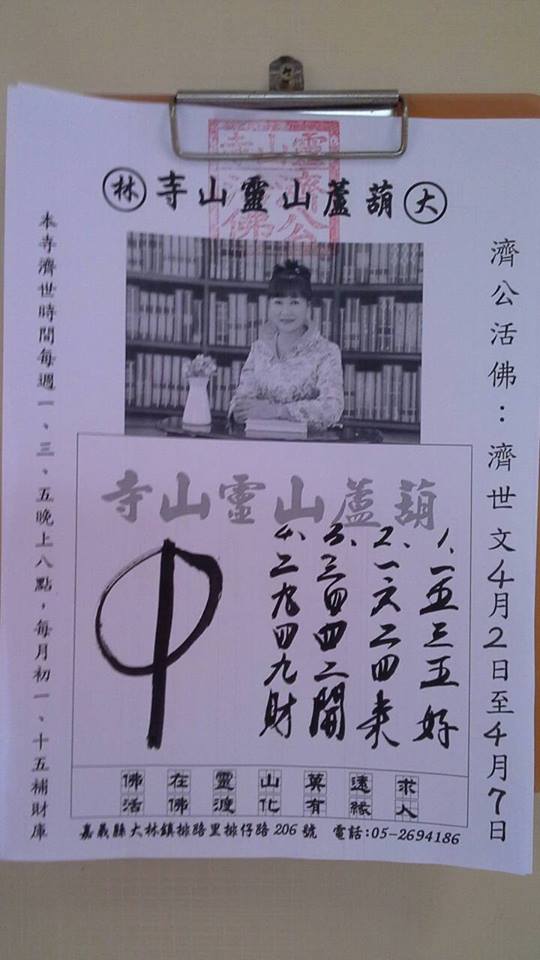 大葫蘆山靈山寺林
靈山寺
濟公
活佛
濟公活佛:濟世文4月2日至4月7日
葫蘆山靈山寺
1、一五三五好
2、一六二四来
3、三四四二開
4、二九四九財
佛在靈山莫遠求
活佛渡化有緣人
本寺濟世時間每週一、三、五晚上八點,每月初一、十五補財庫
嘉義縣大林鎮排路里排仔路 206 號 電話:05-2694186